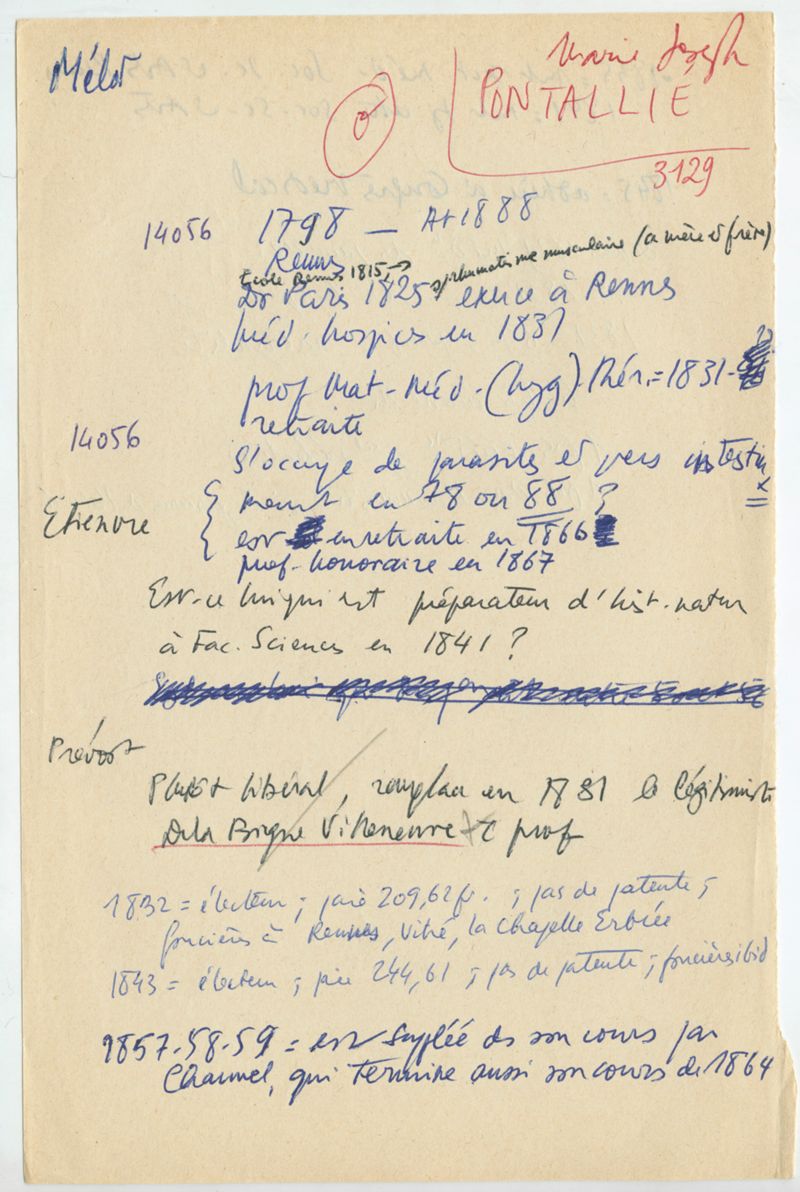 Marie Joseph
Mélor
PONTALLIÉ
3129
14056 1798 – A+1888
Rennes
Ecole Rennes 1815, → rhumatisme musculaire (a mère et frère)
Dr Paris 1825, exerce à Rennes
Méd. hospices en 1831
prof Mat-Méd. (hyg). Thér. = 1831-
retraite
14056
s'occupe de parasites et vers intestin
Etienvre
meurt en 78 ou 88 ?
est en retraite en 1866
prof. honoraire en 1867
Est-ce lui qui est préparateur d'hist. natur
à Fac. Sciences en 1841 ?
Prévost
Plutôt libéral, remplace en 1831 le légitimiste
Dela Bigne Villeneuve c prof
1832 = électeur ; paie 209,62 fr. ; pas de patente ;
foncières à Rennes, Vitré, la Chapelle Erbrée
1843 = électeur ; paie 244,61 ; pas de patente ; foncières ibid
1857-58-59 = est suppléé ds son cours par
Chauvel, qui termine aussi son cours de 1864